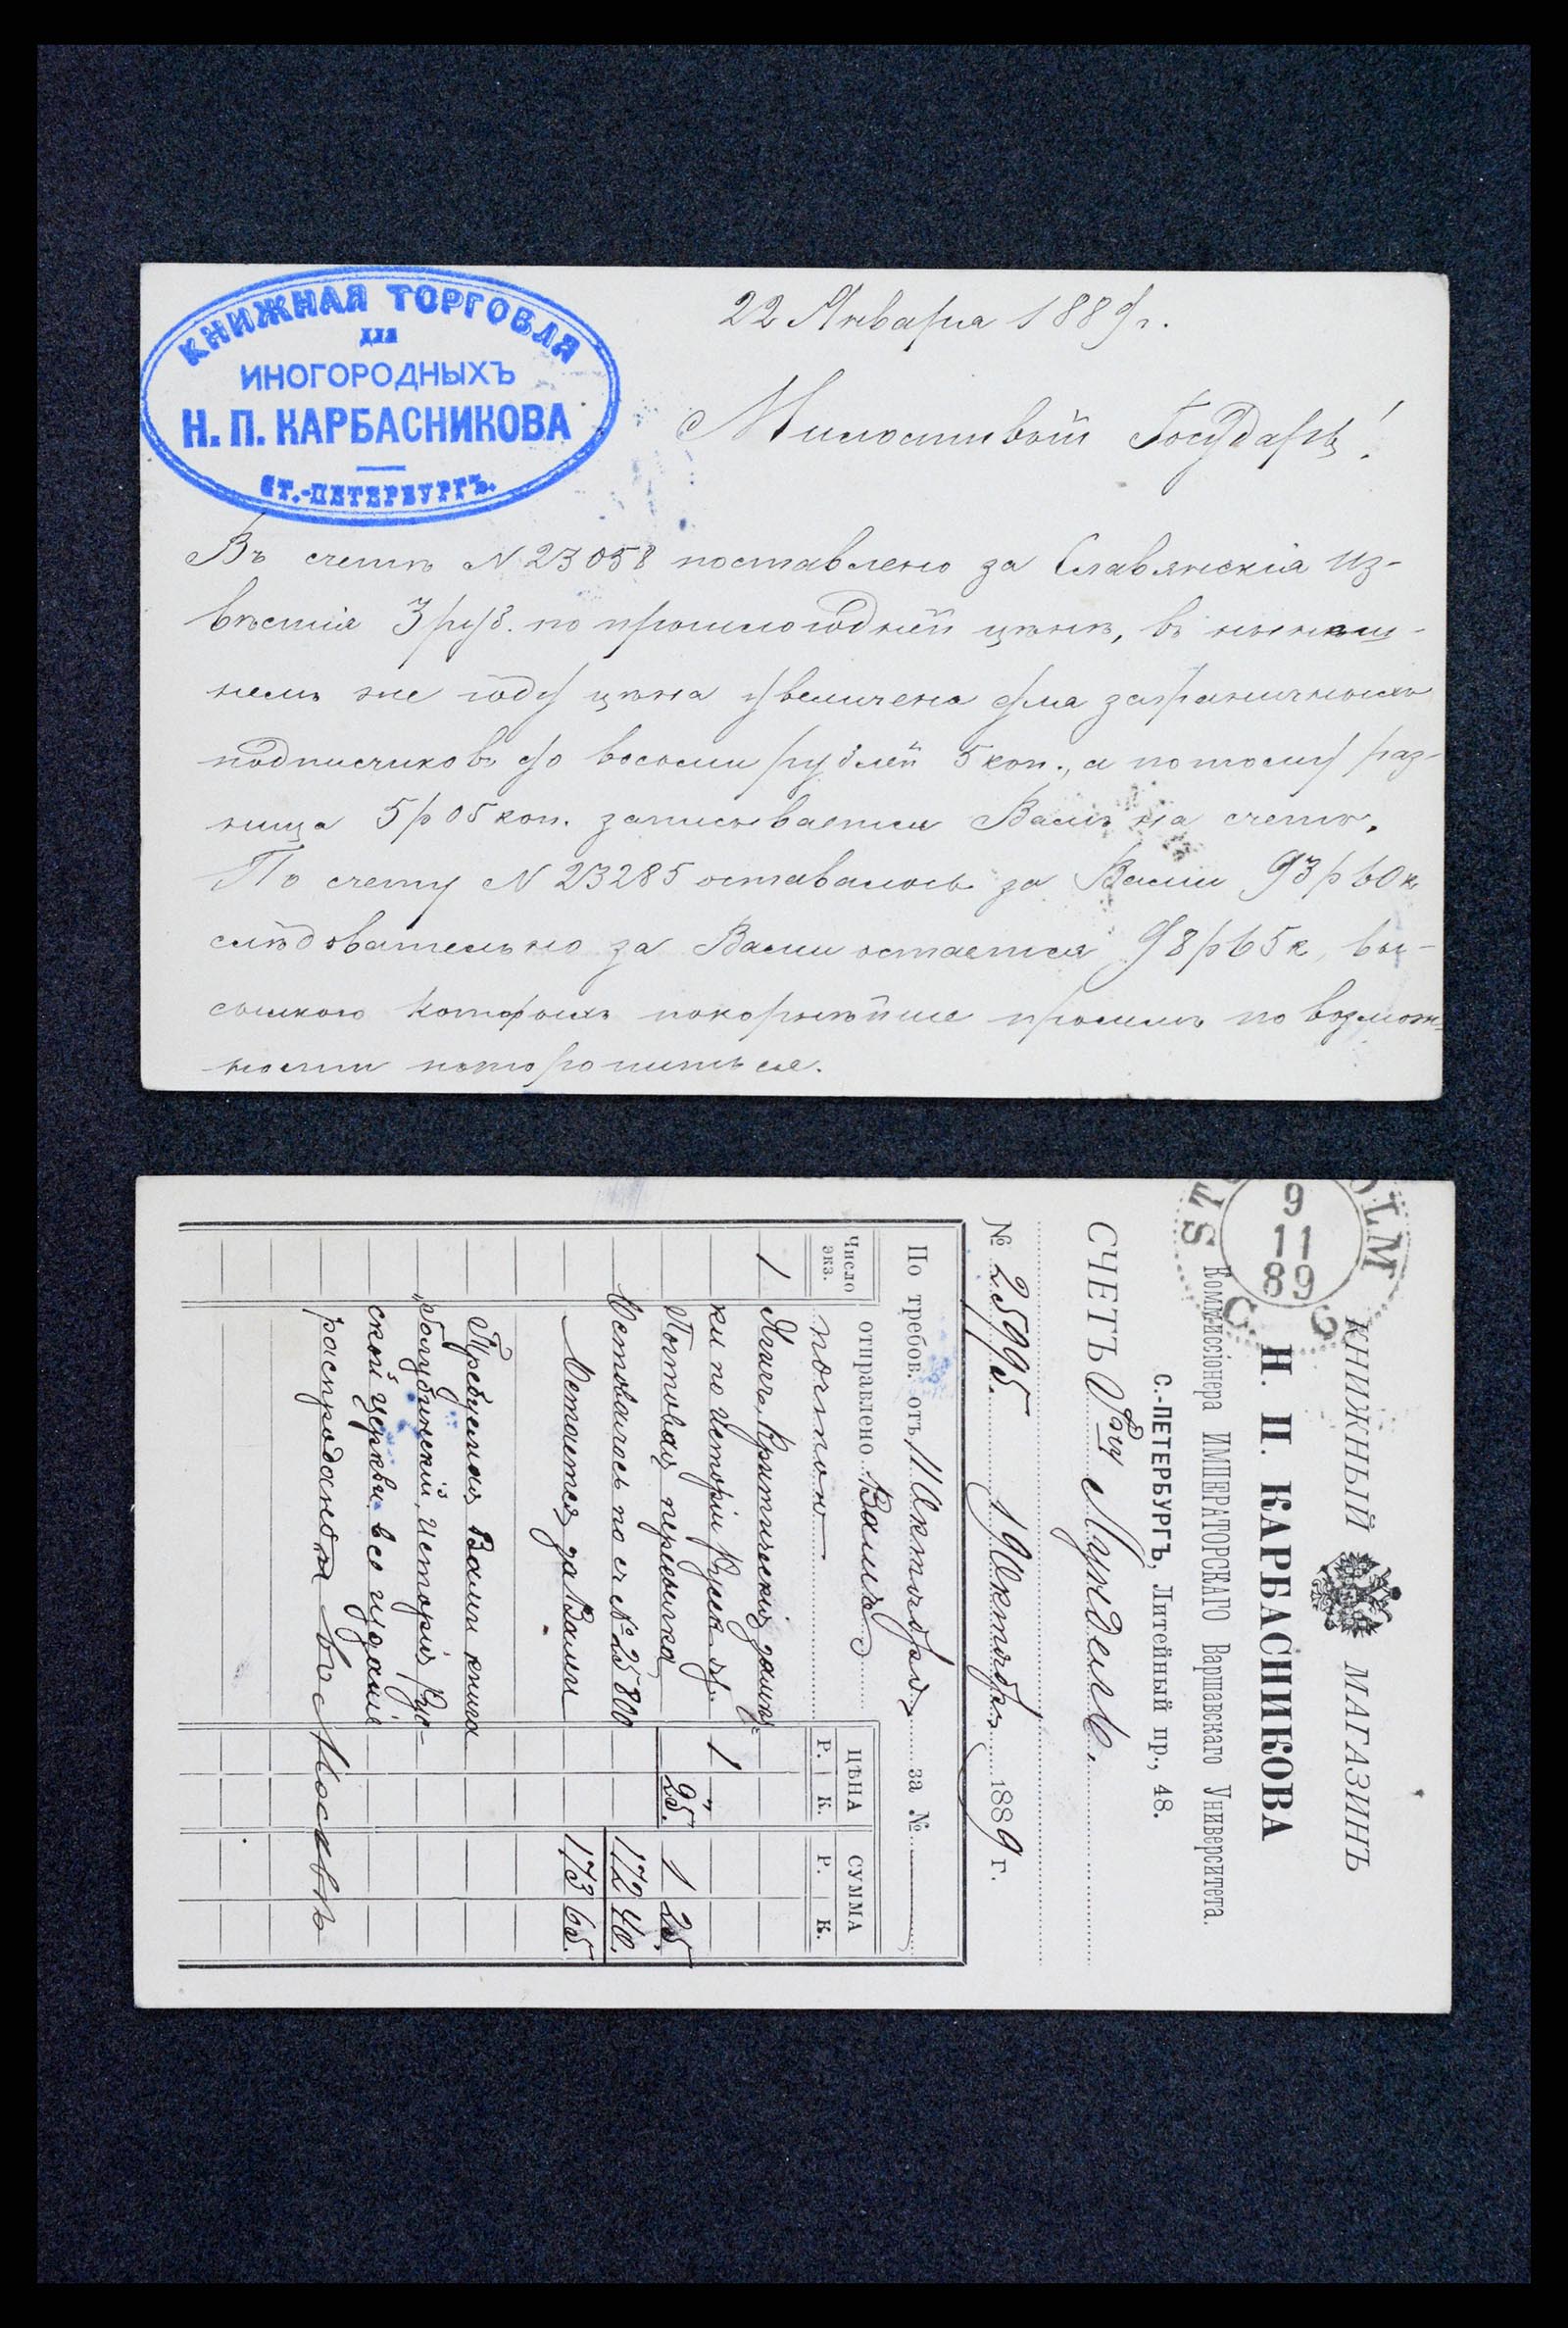 КНИЖНАЯ ТОРГОВЛЯ
ДЛЯ
ИНОГОРОДНЫХЪ
Н. П. КАРБАСНИКОВА
СТ.-ПЕТЕРБУРГЪ.
22 Января 1889 г.
Милостивый Государь!
Въ счетѣ N 23058 поставлено за Славянскія Из-
вѣстія 3 руб. по прошлогодней цѣнѣ, въ нынѣш-
немъ же году цѣна увеличена для заграничныхъ
подписчиковъ до восьми рублей 5 коп., а потому раз-
ница 5 р 05 коп. записывается Вамъ на счетъ.
По счету N 23285 оставалось за Вами 93 р 60 к
слѣдовательно за Вами остается 98 р 65 к, вы-
сылкою которыхъ покорнѣйше просимъ по возмож-
ности поторопиться.
STOCKHOLM
9
11
89
КНИЖНЫЙ МАГАЗИНЪ
Н. П. КАРБАСНИКОВА
Коммиссіонера ИМПЕРАТОРСКАГО Варшавскаго Университета.
С.-ПЕТЕРБУРГЪ, Литейный пр., 48.
СЧЕТЪ Мундель.
№ 25995. 19 Октября 1889 г.
По требов. отъ 11 Октября за №
отправлено Вамъ
почтою
Число экз. ЦѢНА СУММА
Р. К. Р. К.
1 Ягичъ, Критическія замѣт-
ки по Исторіи Русск. яз. 1 "
Почтовая пересылка 25. 1 25.
Оставалось по сч № 25800 172 40.
Остается за Вами 173 65.
Требуемая Вами книга
"Голубинскій, Исторія Рус-
ской церкви" все изданіе
распродано въ Москвѣ